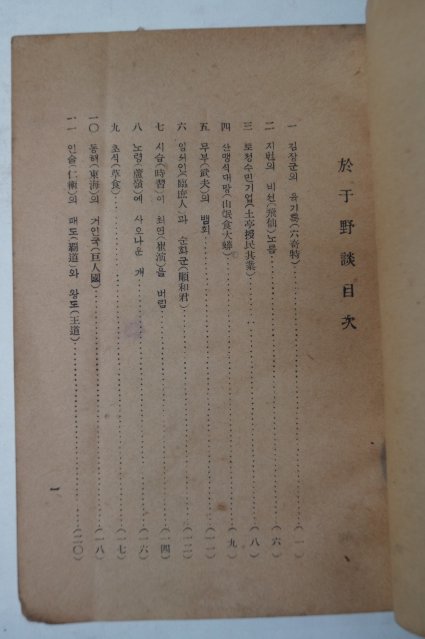 於于野談目次
一 김장군의 육기특(六奇特)………(一)
二 지번의 비선(飛仙)노름………(六)
三 토정수민기업(土亭授民其業)………(八)
四 산맹식대망(山氓食大蟒)………(九)
五 무부(武夫)의 범회………(一一)
六 임해인(臨海人)과 순화군(順和君)………(一二)
七 시습(時習)이 최연(崔演)을 버림………(一四)
八 노령(蘆嶺)에 사오나운 개………(一六)
九 초식(草食)………(一七)
一〇 동해(東海)의 거인국(巨人國)………(一八)
一一 인술(仁術)의 패도(覇道)와 왕도(王道)………(二〇)
一